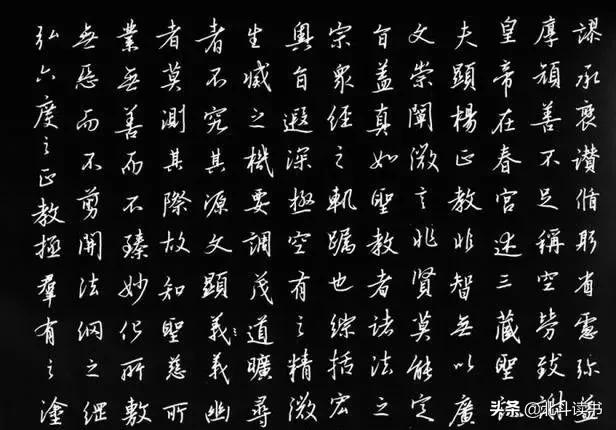 謬承褒讚循躬省慮弥益
厚顏善不足稱空勞致謝
皇帝在春宮述三藏聖記
夫顯楊正教非智無以廣
文崇闡微言非賢莫能定
旨蓋真如聖教者諸法之
宗衆經之軌躅也綜括宏
奧旨遐深極空有之精微
生滅之機要詞茂道曠尋
者不究其源文顯義義幽
者莫測其際故知聖慈所
業無善而不臻妙化所敷
無惡而不剪開法網之綱
弘六度之正教極羣有之塗
头条 @北斗读书